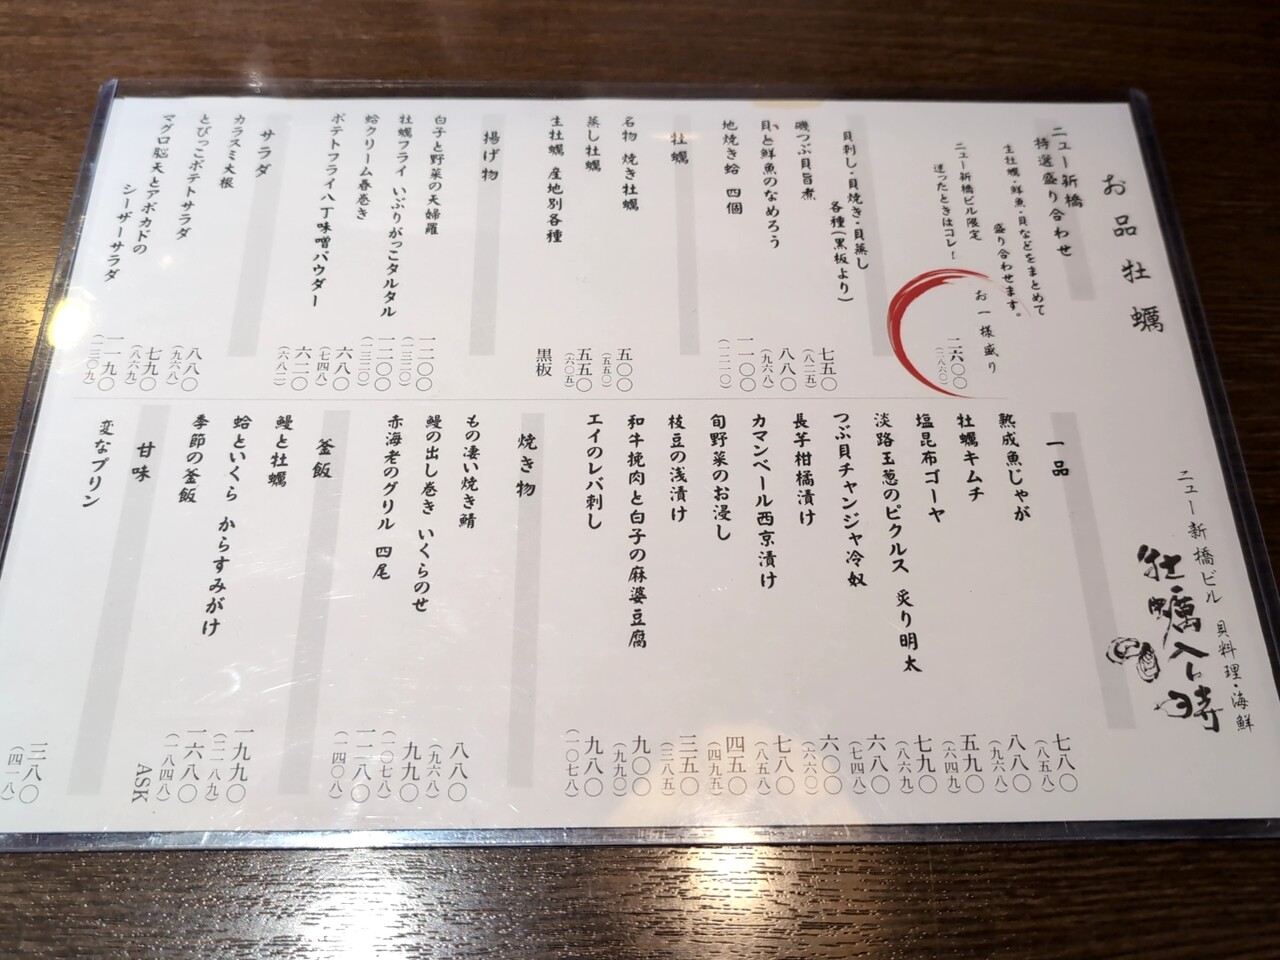 お品牡蠣
ニュー新橋
特選盛り合わせ
生牡蠣・鮮魚・貝などをまとめて
盛り合わせます。
お一様盛り
ニュー新橋ビル限定
迷ったときはコレ!
二六〇〇
(二八六〇)
貝刺し・貝焼き・貝蒸し
各種(黒板より)
磯つぶ貝旨煮 七五〇
(八二五)
貝と鮮魚のなめろう 八八〇
(九六八)
地焼き蛤 四個 一一〇〇
(一二一〇)
牡蠣
名物 焼き牡蠣 五〇〇
(五五〇)
蒸し牡蠣 五五〇
(六〇五)
生牡蠣 産地別各種 黒板
揚げ物
白子と野菜の天婦羅 一二〇〇
(一三二〇)
牡蠣フライ いぶりがっこタルタル 一二〇〇
(一三二〇)
蛤クリーム春巻き 六八〇
(七四八)
ポテトフライ八丁味噌パウダー 六二〇
(六八二)
サラダ
カラスミ大根 八八〇
(九六八)
とびっこポテトサラダ 七九〇
(八六九)
マグロ脳天とアボカドの
シーザーサラダ 一一九〇
(一三〇九)
ニュー新橋ビル 貝料理・海鮮
牡蠣入レ時
一品
熟成魚じゃが 七八〇
(八五八)
牡蠣キムチ 八八〇
(九六八)
塩昆布ゴーヤ 五九〇
(六四九)
淡路玉葱のピクルス 炙り明太 七九〇
(八六九)
つぶ貝チャンジャ冷奴 六八〇
(七四八)
長芋柑橘漬け 六〇〇
(六六〇)
カマンベール西京漬け 七八〇
(八五八)
旬野菜のお浸し 四五〇
(四九五)
枝豆の浅漬け 三五〇
(三八五)
和牛挽肉と白子の麻婆豆腐 九〇〇
(九九〇)
エイのレバ刺し 九八〇
(一〇七八)
焼き物
もの凄い焼き鯖 八八〇
(九六八)
鰻の出し巻き いくらのせ 九九〇
(一〇七八)
赤海老のグリル 四尾 一二八〇
(一四〇八)
釜飯
鰻と牡蠣 一九九〇
(二一八九)
蛤といくら からすみがけ 一六八〇
(一八四八)
季節の釜飯 ASK
甘味
変なプリン 三八〇
(四一八)